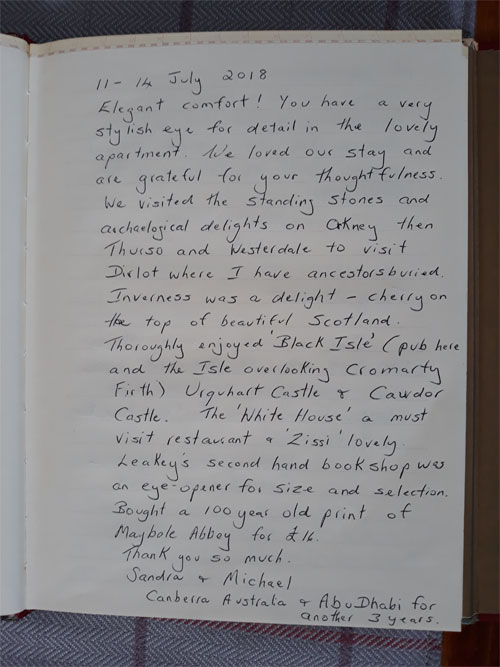 11 - 14 July 2018
Elegant comfort! You have a very
stylish eye for detail in the lovely
apartment. We loved our stay and
are grateful for your thoughtfulness.
We visited the standing stones and
archaelogical delights on Orkney then
Thurso and Westerdale to visit
Dirlot where I have ancestors buried.
Inverness was a delight - cherry on
the top of beautiful Scotland.
Thoroughly enjoyed 'Black Isle' (pub here
and the Isle overlooking Cromarty
Firth) Urquhart Castle & Cawdor
Castle. The 'White House' a must
visit restaurant & 'Zissi' lovely.
Leakey's second hand bookshop was
an eye-opener for size and selection.
Bought a 100 year old print of
Maybole Abbey for £16.
Thank you so much.
Sandra & Michael
Canberra Australia & AbuDhabi for
another 3 years.